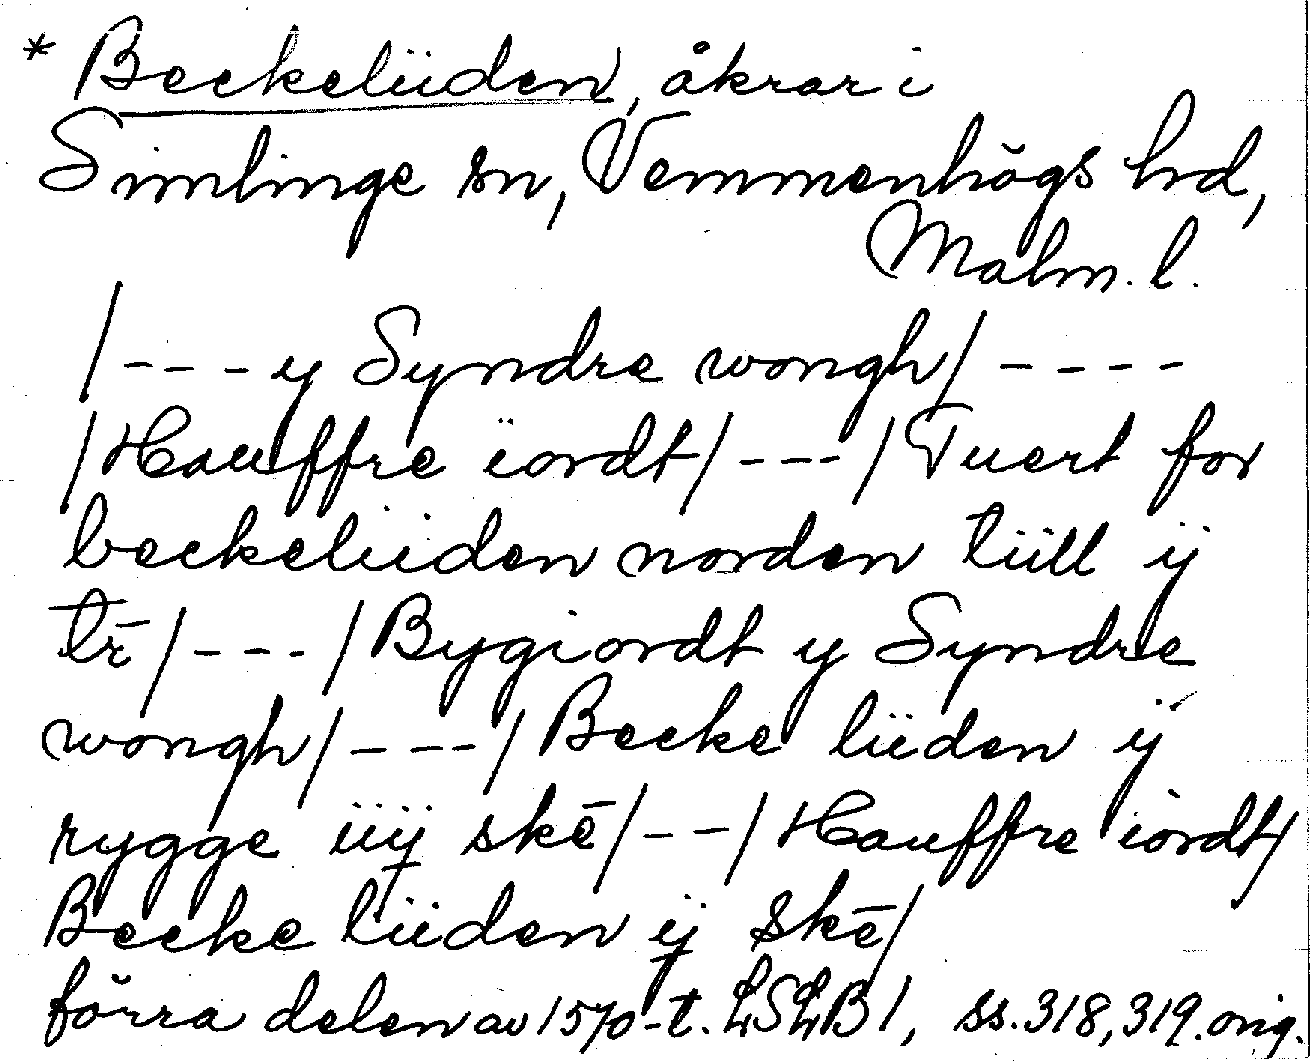 * Beckeliiden, åkrar i
Simlinge sn, Vemmenhögs hrd,
Malm. l.
/---y Syndre wongh/----
/Hauffre iordt/---/Tuert for
beckeliiden norden tiill ij
tr̄/---/Bygiordt y Syndre
wongh/---/Becke liiden ij
rygge iiij skē/--/Hauffre iordt/
Becke liiden ij skē/
förra delen av 1570-t. LSLB1, ss. 318, 319. orig.